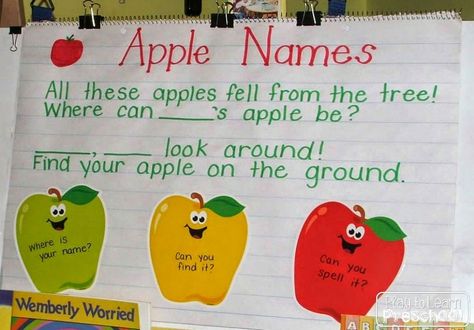 Apple Names
All these apples fell from the tree!
Where can ____'s apple be?
____, ____ look around!
Find your apple on the ground.
Where is
your name?
Can you
find it?
Can you
spell it?
Wemberly Worried
AB
to Learn
PreSchool